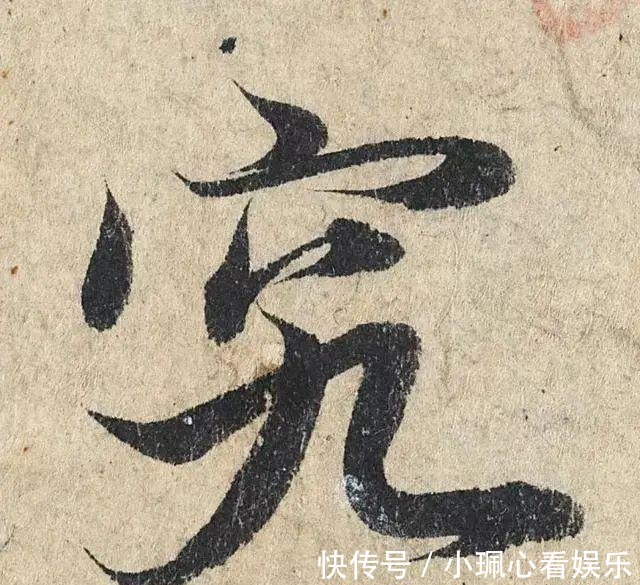 究
快传号 / 小珮心看娱乐